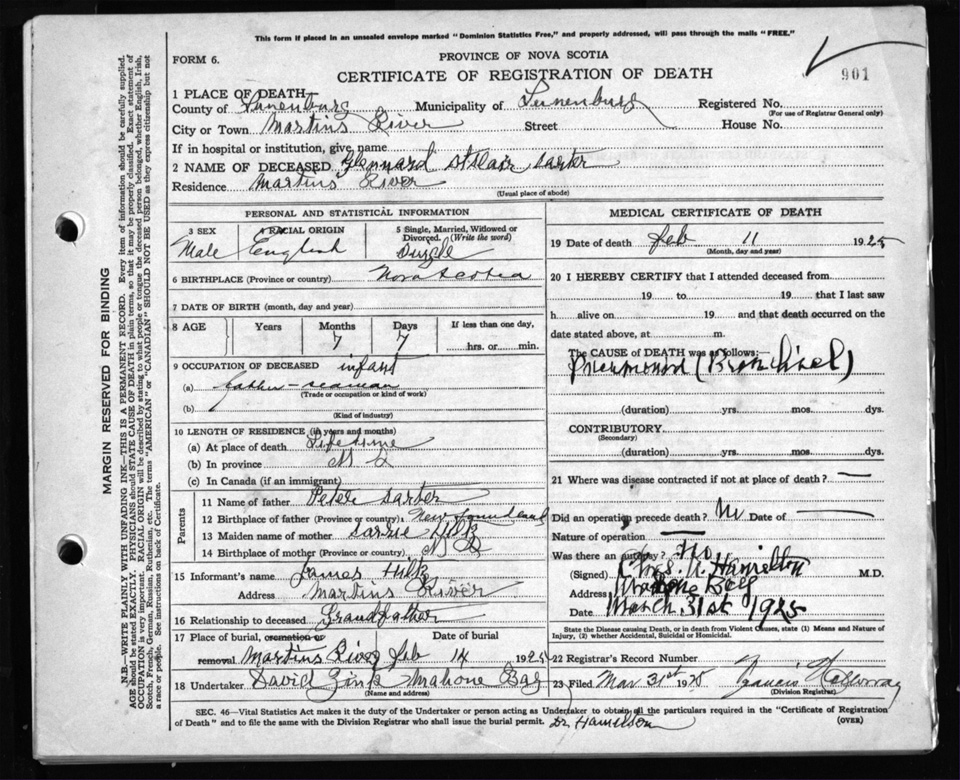 This form if placed in an unsealed envelope marked "Dominion Statistics Free," and properly addressed, will pass through the mails "FREE."
FORM 6.
PROVINCE OF NOVA SCOTIA
CERTIFICATE OF REGISTRATION OF DEATH
901
1 PLACE OF DEATH
County of Lunenburg Municipality of Lunenburg Registered No.
(For use of Registrar General only)
City or Town Martins River Street House No.
If in hospital or institution, give name
2 NAME OF DECEASED St Clair
Residence Martins River
(Usual place of abode)
PERSONAL AND STATISTICAL INFORMATION
3 SEX 4 RACIAL ORIGIN 5 Single, Married, Widowed or Divorced. (Write the word)
Male English Single
6 BIRTHPLACE (Province or country) Nova Scotia
7 DATE OF BIRTH (month, day and year)
8 AGE Years Months Days If less than one day,
7 7 hrs. or min.
9 OCCUPATION OF DECEASED infant
(a) father - seaman
(Trade or occupation or kind of work)
(b)
(Kind of industry)
10 LENGTH OF RESIDENCE (in years and months)
(a) At place of death Lifetime
(b) In province
(c) In Canada (if an immigrant)
Parents
11 Name of father Peter
12 Birthplace of father (Province or country) Newfoundland
13 Maiden name of mother
14 Birthplace of mother (Province or country)
15 Informant's name James
Address Martins River
16 Relationship to deceased Grandfather
17 Place of burial, cremation or removal Date of burial
Martins River Feb 14 1925
18 Undertaker David Zink Mahone Bay
(Name and address)
MEDICAL CERTIFICATE OF DEATH
19 Date of death Feb 11 1925
(Month, day and year)
20 I HEREBY CERTIFY that I attended deceased from
19 to 19 that I last saw
h alive on 19 and that death occurred on the
date stated above, at m.
The CAUSE of DEATH was as follows:—
(duration) yrs. mos. dys.
CONTRIBUTORY
(Secondary)
(duration) yrs. mos. dys.
21 Where was disease contracted if not at place of death? —
Did an operation precede death? No Date of —
Nature of operation —
Was there an autopsy? No
(Signed) Hamilton M.D.
Address Mahone Bay
Date March 31st 1925
State the Disease causing Death, or in death from Violent Causes, state (1) Means and Nature of
Injury, (2) whether Accidental, Suicidal or Homicidal.
22 Registrar's Record Number
23 Filed Mar 31st 1925 Francis
(Division Registrar)
SEC. 46—Vital Statistics Act makes it the duty of the Undertaker or person acting as Undertaker to obtain all the particulars required in the "Certificate of Registration
of Death" and to file the same with the Division Registrar who shall issue the burial permit. Dr Hamilton (OVER)
MARGIN RESERVED FOR BINDING
N.B.—WRITE PLAINLY WITH UNFADING INK—THIS IS A PERMANENT RECORD. Every item of information should be carefully supplied.
AGE should be stated EXACTLY. PHYSICIANS should STATE CAUSE OF DEATH in plain terms, so that it may be properly classified. Exact statement of
OCCUPATION is very important. RACIAL ORIGIN will be described by stating to what people or tongue the deceased person belonged, whether English, Irish,
Scotch, French, German, Russian, Ruthenian, etc. The terms "AMERICAN" or "CANADIAN" SHOULD NOT BE USED as they express citizenship but not
a race or people. See instructions on back of Certificate.